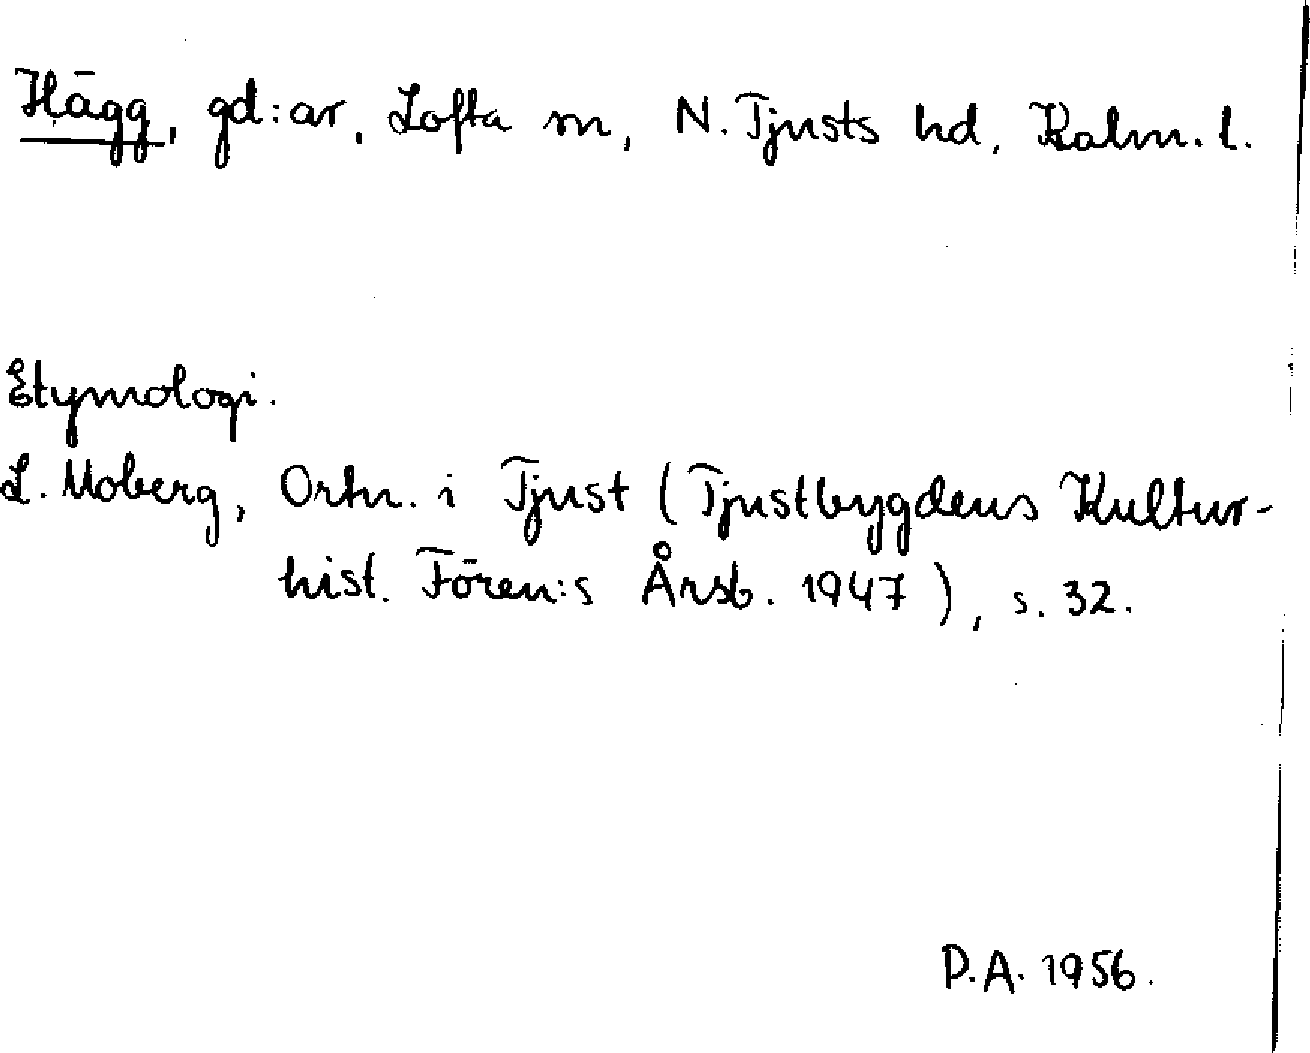 Hägg, gd:ar, Lofta sn, N. Tjusts hd, Kalm. l.
Etymologi.
L. Moberg, Ortn. i Tjust (Tjustbygdens Kultur-
hist. Fören:s Årsb. 1947), s. 32.
P.A. 1956.